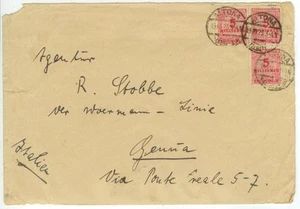 ALTONA
ALTONA
5
MILLIONEN
ALTONA
5
MILLIONEN
Agentur
R. Stobbe
der Woermann - Linie
Genua
Italien
Via Ponte Reale 5-7.